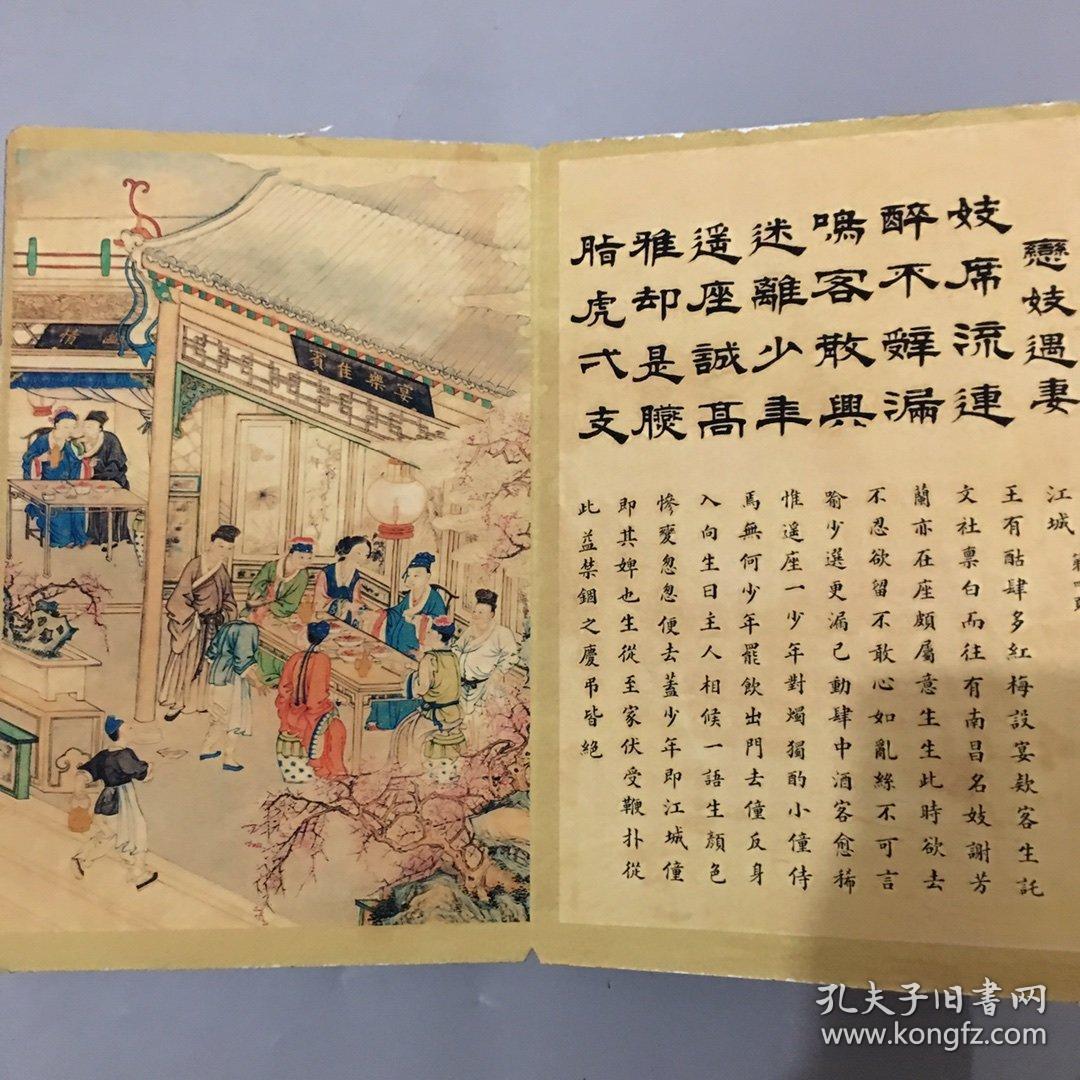 幽情
宴樂佳賓
戀妓遇妻
妓席流連
醉不辭漏
鳴客散興
迷離少年
遥座誠高
雅却是朦
脂虎弍支
江城
王有酤肆多紅梅設宴欵客生託
文社禀白而往有南昌名妓謝芳
蘭亦在座頗屬意生生此時欲去
不忍欲留不敢心如亂絲不可言
喻少選更漏已動肆中酒客愈稀
惟遥座一少年對燭獨酌小僮侍
馬無何少年罷飲出門去僮反身
入向生曰主人相候一語生顏色
慘變怱怱便去蓋少年即江城僮
即其婢也生從至家伏受鞭扑從
此益禁錮之慶弔皆絕
孔夫子旧书网
www.kongfz.com